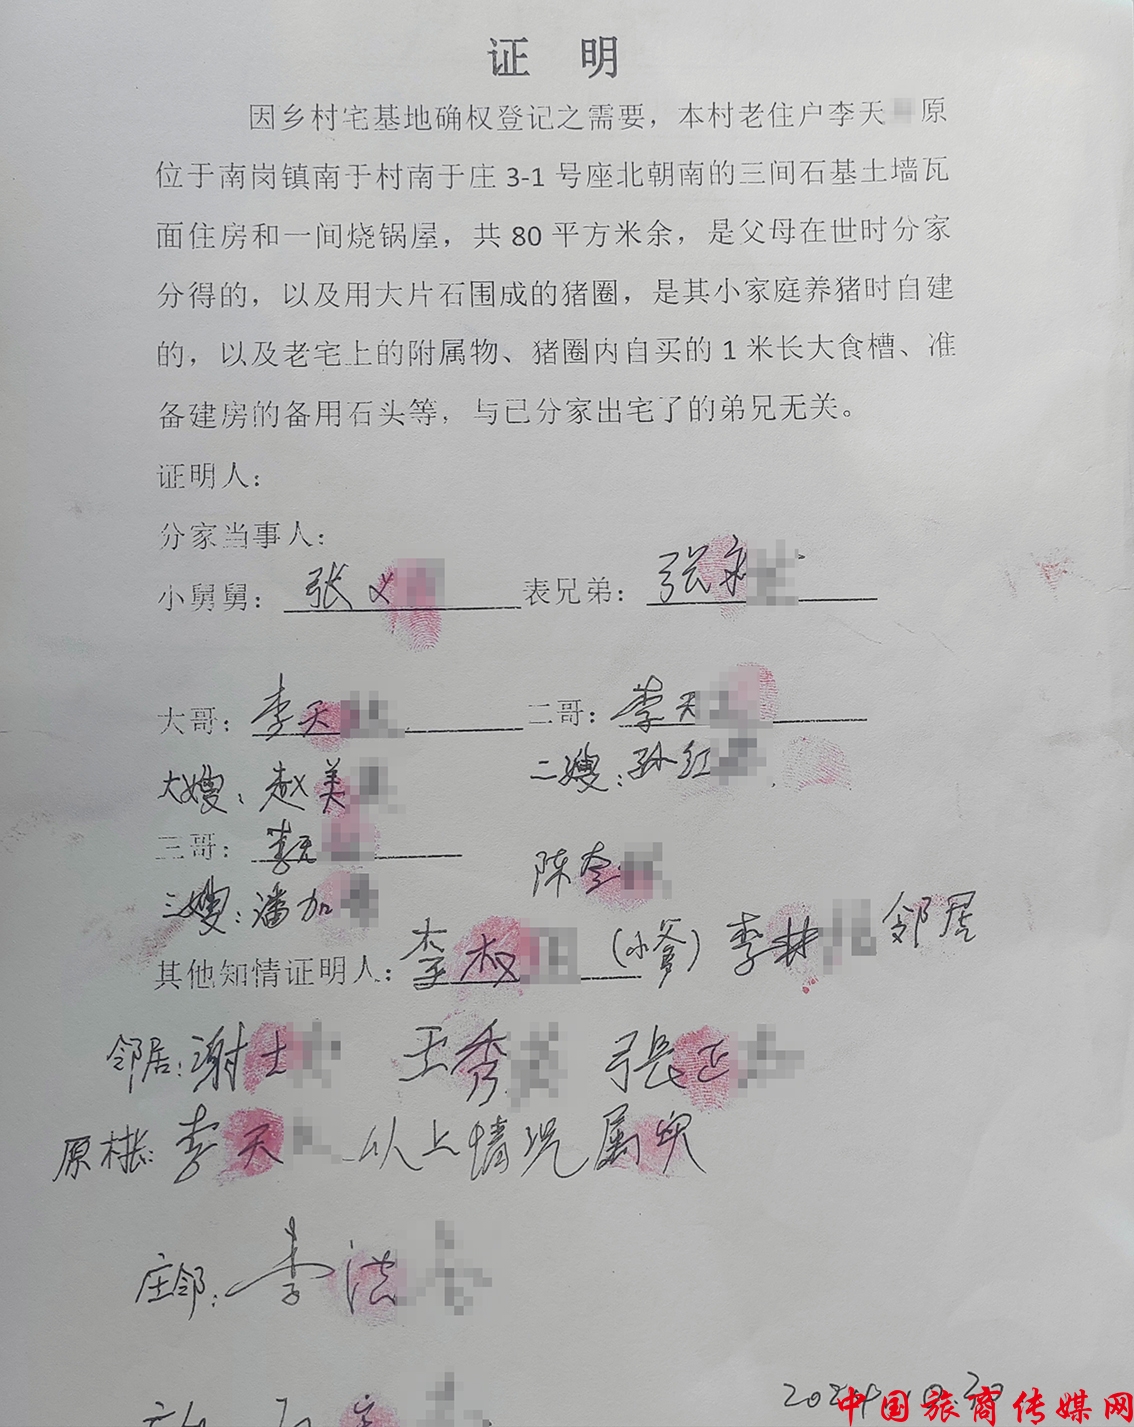 证 明
因乡村宅基地确权登记之需要，本村老住户李天 原
位于南岗镇南于村南于庄 3-1 号座北朝南的三间石基土墙瓦
面住房和一间烧锅屋，共 80 平方米余，是父母在世时分家
分得的，以及用大片石围成的猪圈，是其小家庭养猪时自建
的，以及老宅上的附属物、猪圈内自买的 1 米长大食槽、准
备建房的备用石头等，与已分家出宅了的弟兄无关。
证明人：
分家当事人：
小舅舅：张义 表兄弟：张
大哥：李天 二哥：李天
大嫂：赵美 二嫂：孙红
三哥：李天
陈
三嫂：潘加
其他知情证明人：李 （小爹）李林 邻居
邻居：谢士 王秀 張正
原村长：李天 以上情况属实
庄邻：李洪
中国旅商传媒网